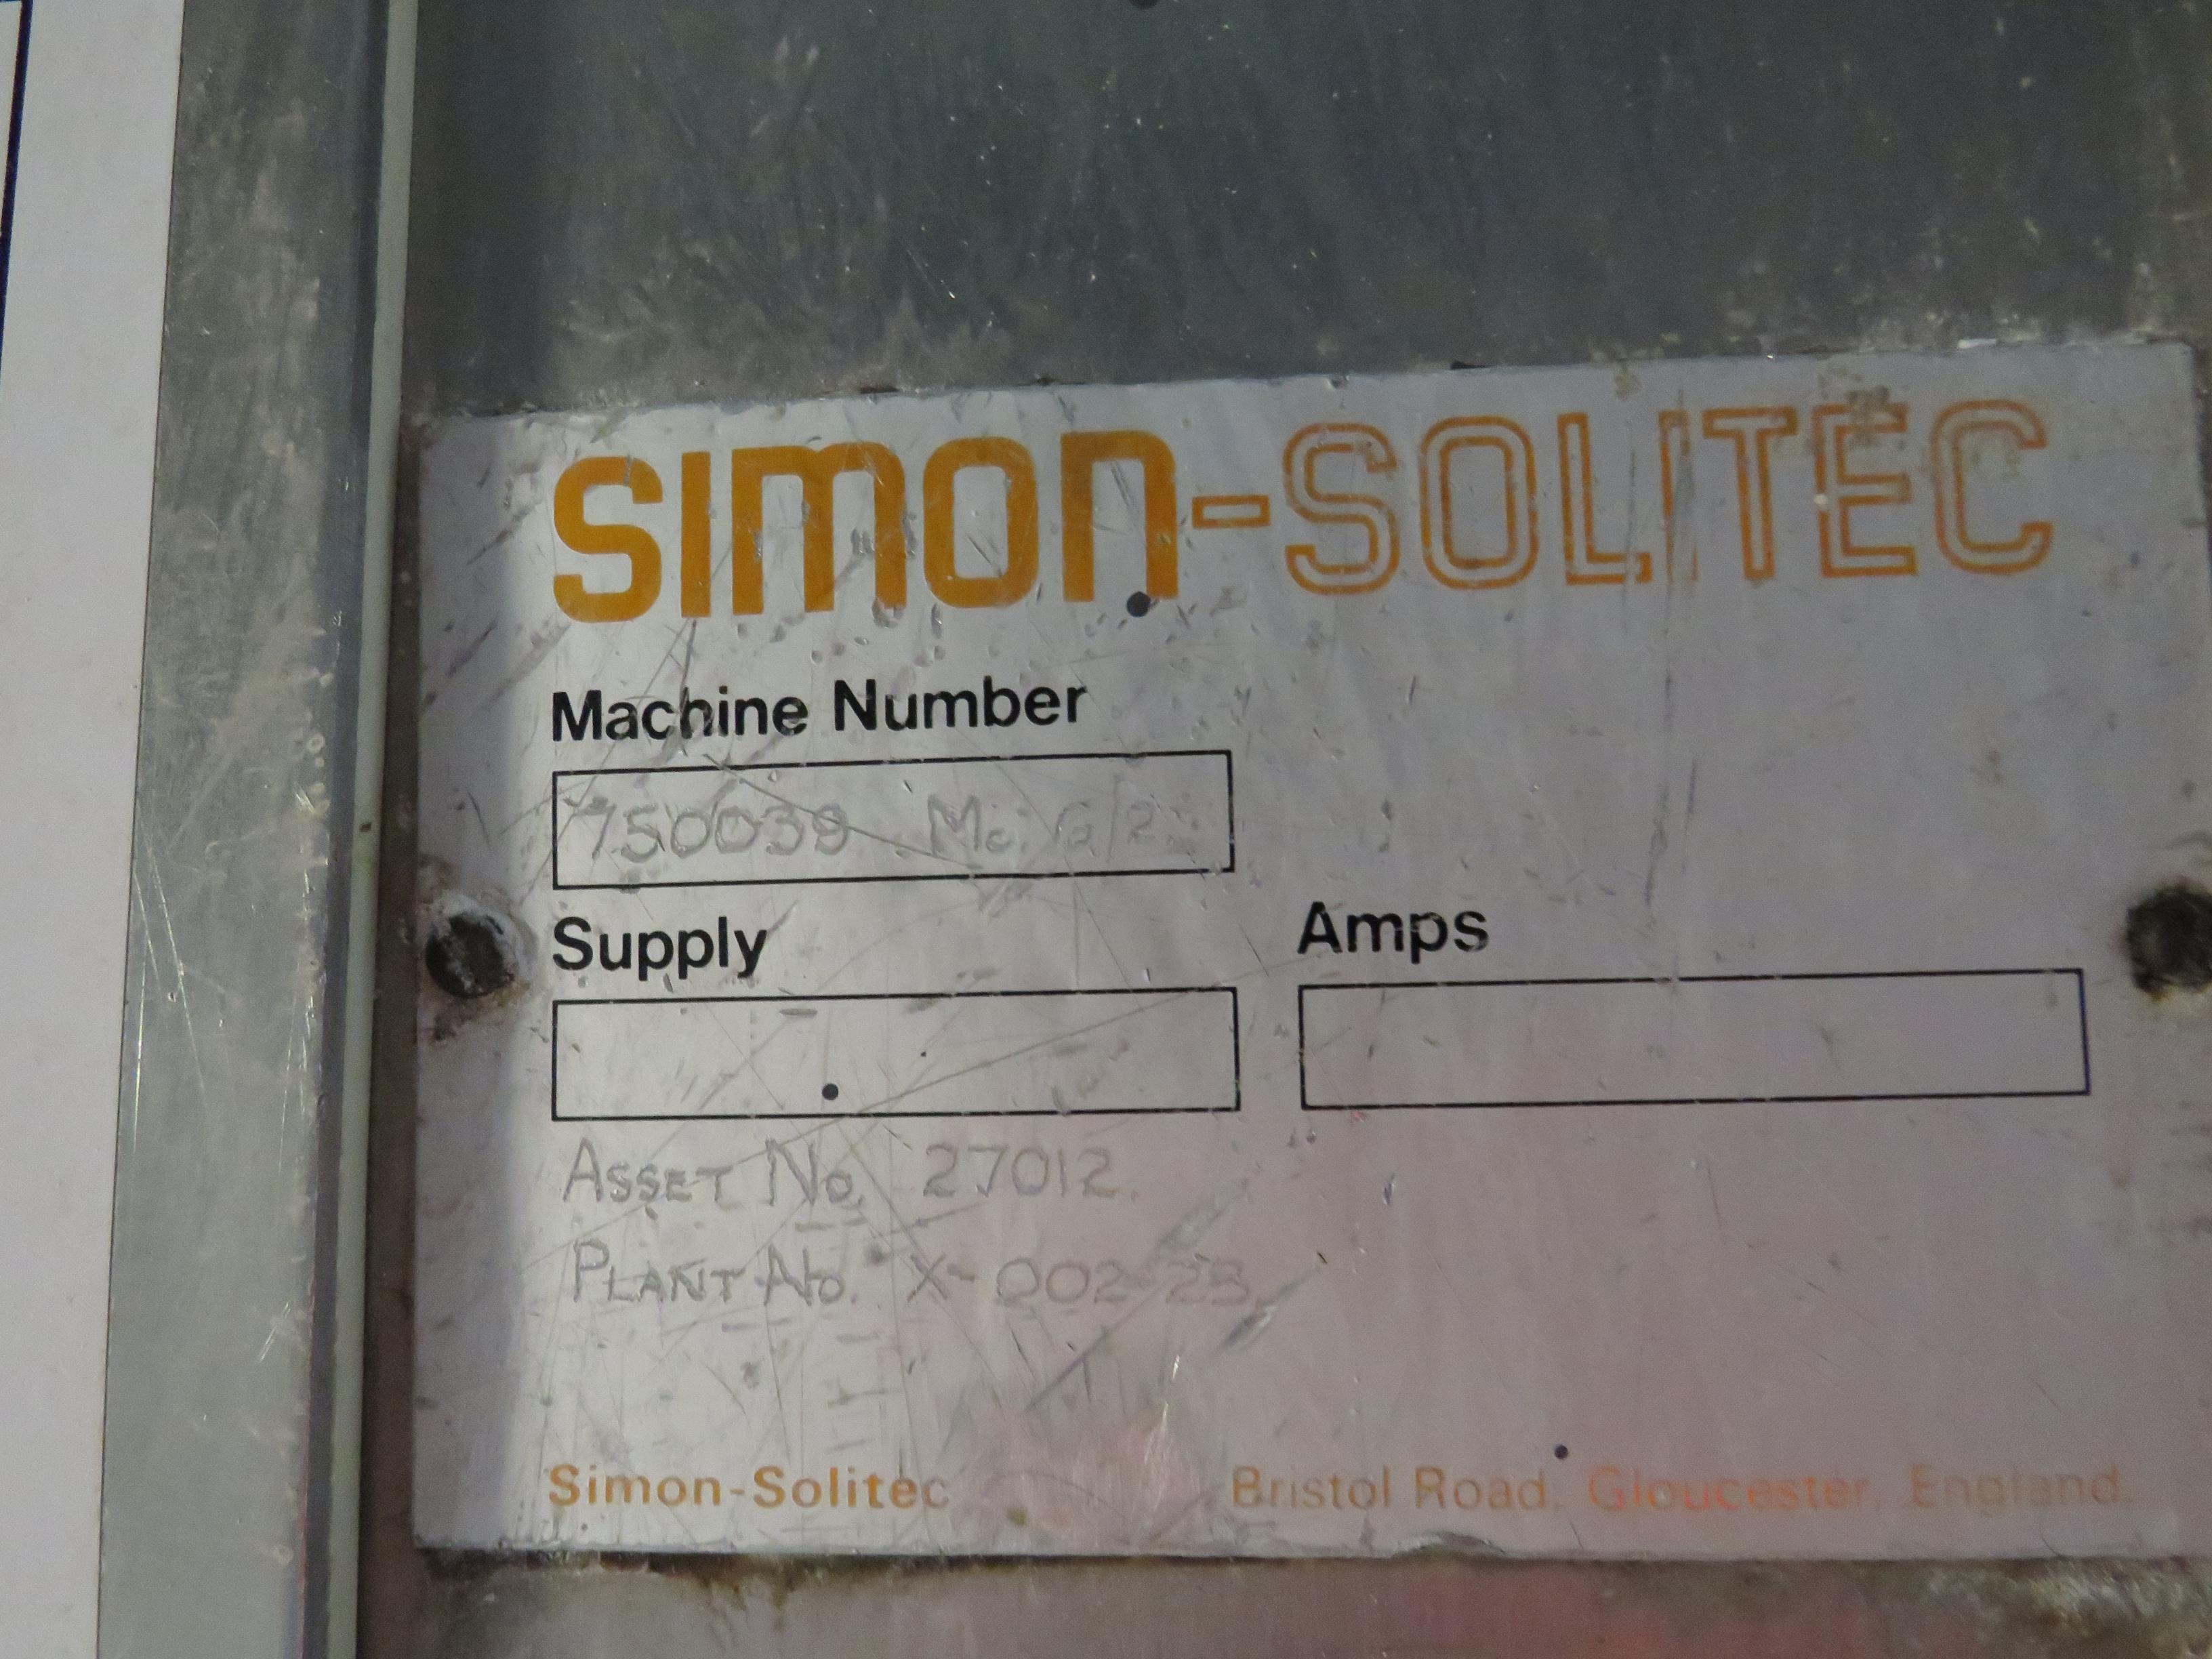 SIMON-SOLITEC
Machine Number
750039 Mc. G/2
Supply Amps
ASSET No. 27012.
PLANT No. X-002-23
Simon-Solitec Bristol Road, Gloucester, England.